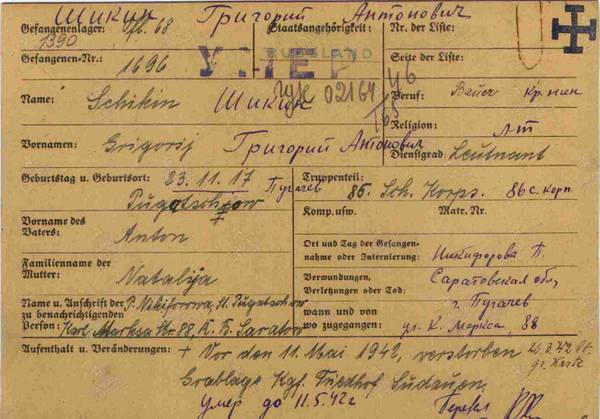 Шикин Григорий Антонович
Gefangenenlager: Ofl. 68 Staatsangehörigkeit: Nr. der Liste:
1390 RUSSLAND
Gefangenen-Nr.: 1696 УМЕР Seite der Liste:
02164
Name: Schikin Шикин Beruf: Bauer Кр-нин
Religion:
Vornamen: Grigorij Григорий Антонович Dienstgrad: Leutnant Л-т
Geburtstag u. Geburtsort: 23.11.17 Пугачев Truppenteil: 86. Sch. Korps. 86 с. корп.
Pugatschow
Vorname des Vaters: Anton Komp. usw. Matr. Nr.
Familienname der Mutter: Natalija Ort und Tag der Gefangennahme oder Internierung: Никифорова П.
Verwundungen, Verletzungen oder Tod: Саратовская обл,
Name u. Anschrift der zu benachrichtigenden Person: P. Nikiforowa, St. Pugatschow wann und von wo zugegangen: г. Пугачев
Karl Marksa Str. 88, Saratow ул. К. Маркса, 88
Aufenthalt u. Veränderungen: + Vor den 11. Mai 1942, verstorben 26.3.42 lt. gr. Karte
Grablage Kgf. Friedhof Sudauen,
Умер до 11.5.42 г Перевел